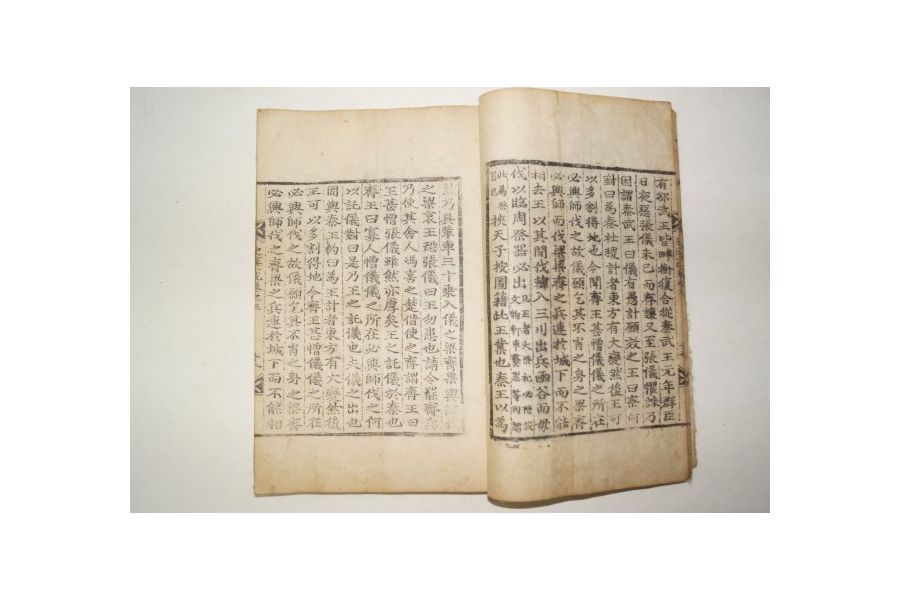 有郤武王皆畔衡復合從秦武王元年群臣
日夜惡張儀未已而齊讓又至張儀懼誅乃
因謂秦武王曰儀有愚計願效之王曰奈何
對曰為秦社稷計者東方有大變然後王可
以多割得地也今聞齊王甚憎儀儀之所在
必興師伐之故儀願乞其不肖之身之梁齊
必興師而伐梁梁齊之兵連於城下而不能
相去王以其間伐韓入三川出兵函谷而毋
伐以臨周祭器必出
此為
挾天子按圖籍此王業也秦王以為
乃具革車三十乘入儀之梁齊果興
之梁哀王恐張儀曰王勿患也請令罷齊兵
乃使其舍人馮喜之楚借使之齊謂齊王曰
王甚憎張儀雖然亦厚矣王之託儀於秦也
齊王曰寡人憎儀儀之所在必興師伐之何
以託儀對曰是乃王之託儀也夫儀之出也
固與秦王約曰為王計者東方有大變然後
王可以多割得地今齊王甚憎儀儀之所在
必興師伐之故儀願乞其不肖之身之梁齊
必興師伐之齊梁之兵連於城下而不能相